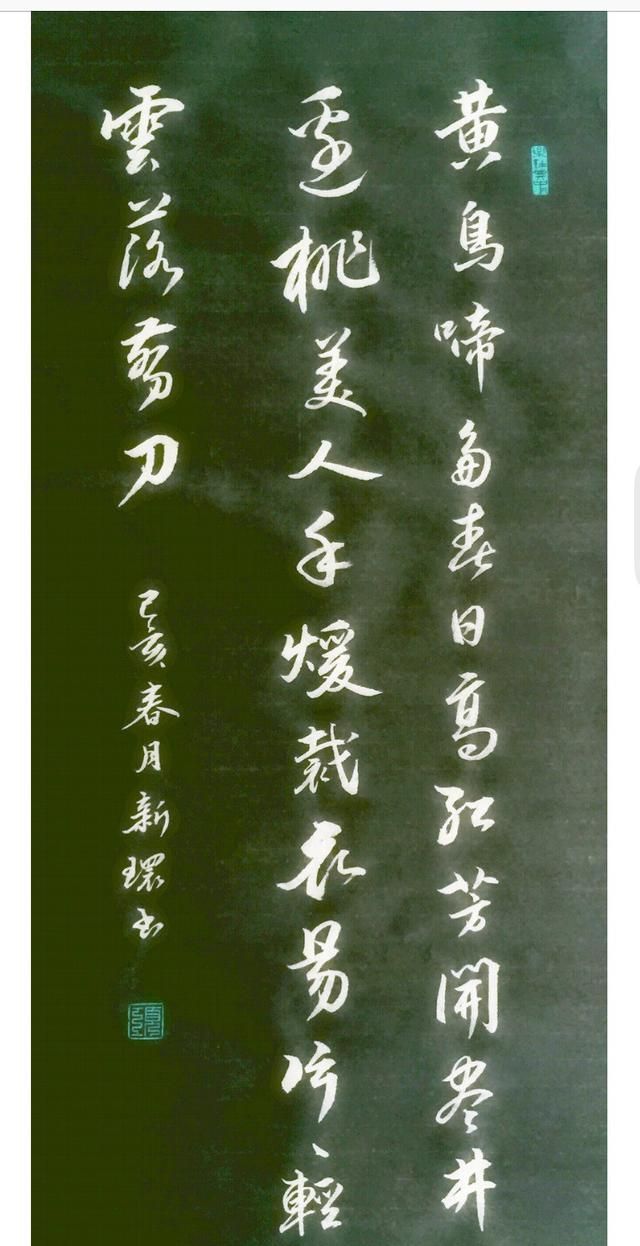 黄鳥啼多春日高紅芳開盡井
邊桃美人手煖裁衣易片〻輕
雲落剪刀 己亥春月新環書